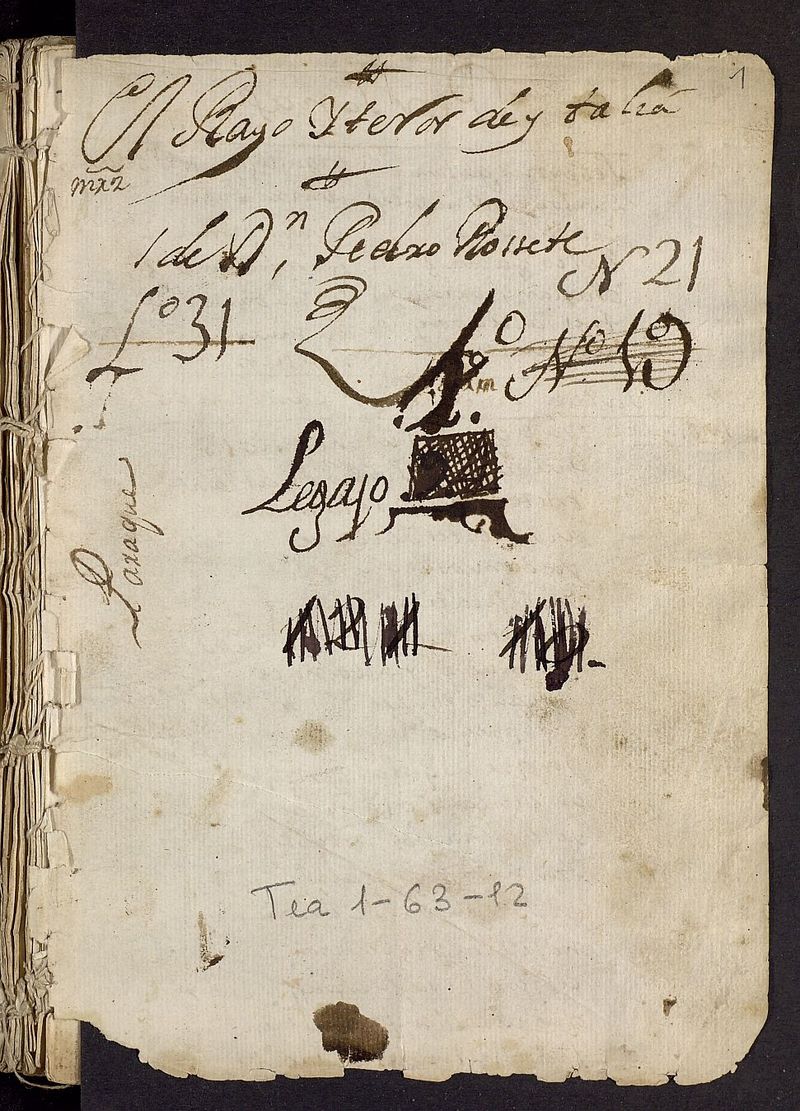 1
El Rayo Y terror de ytalia
mxz
1 de Dn, Pedro Rossete
N 21
Lo 31
1o
No 19
Legajo
Paraque
Tea 1-63-12